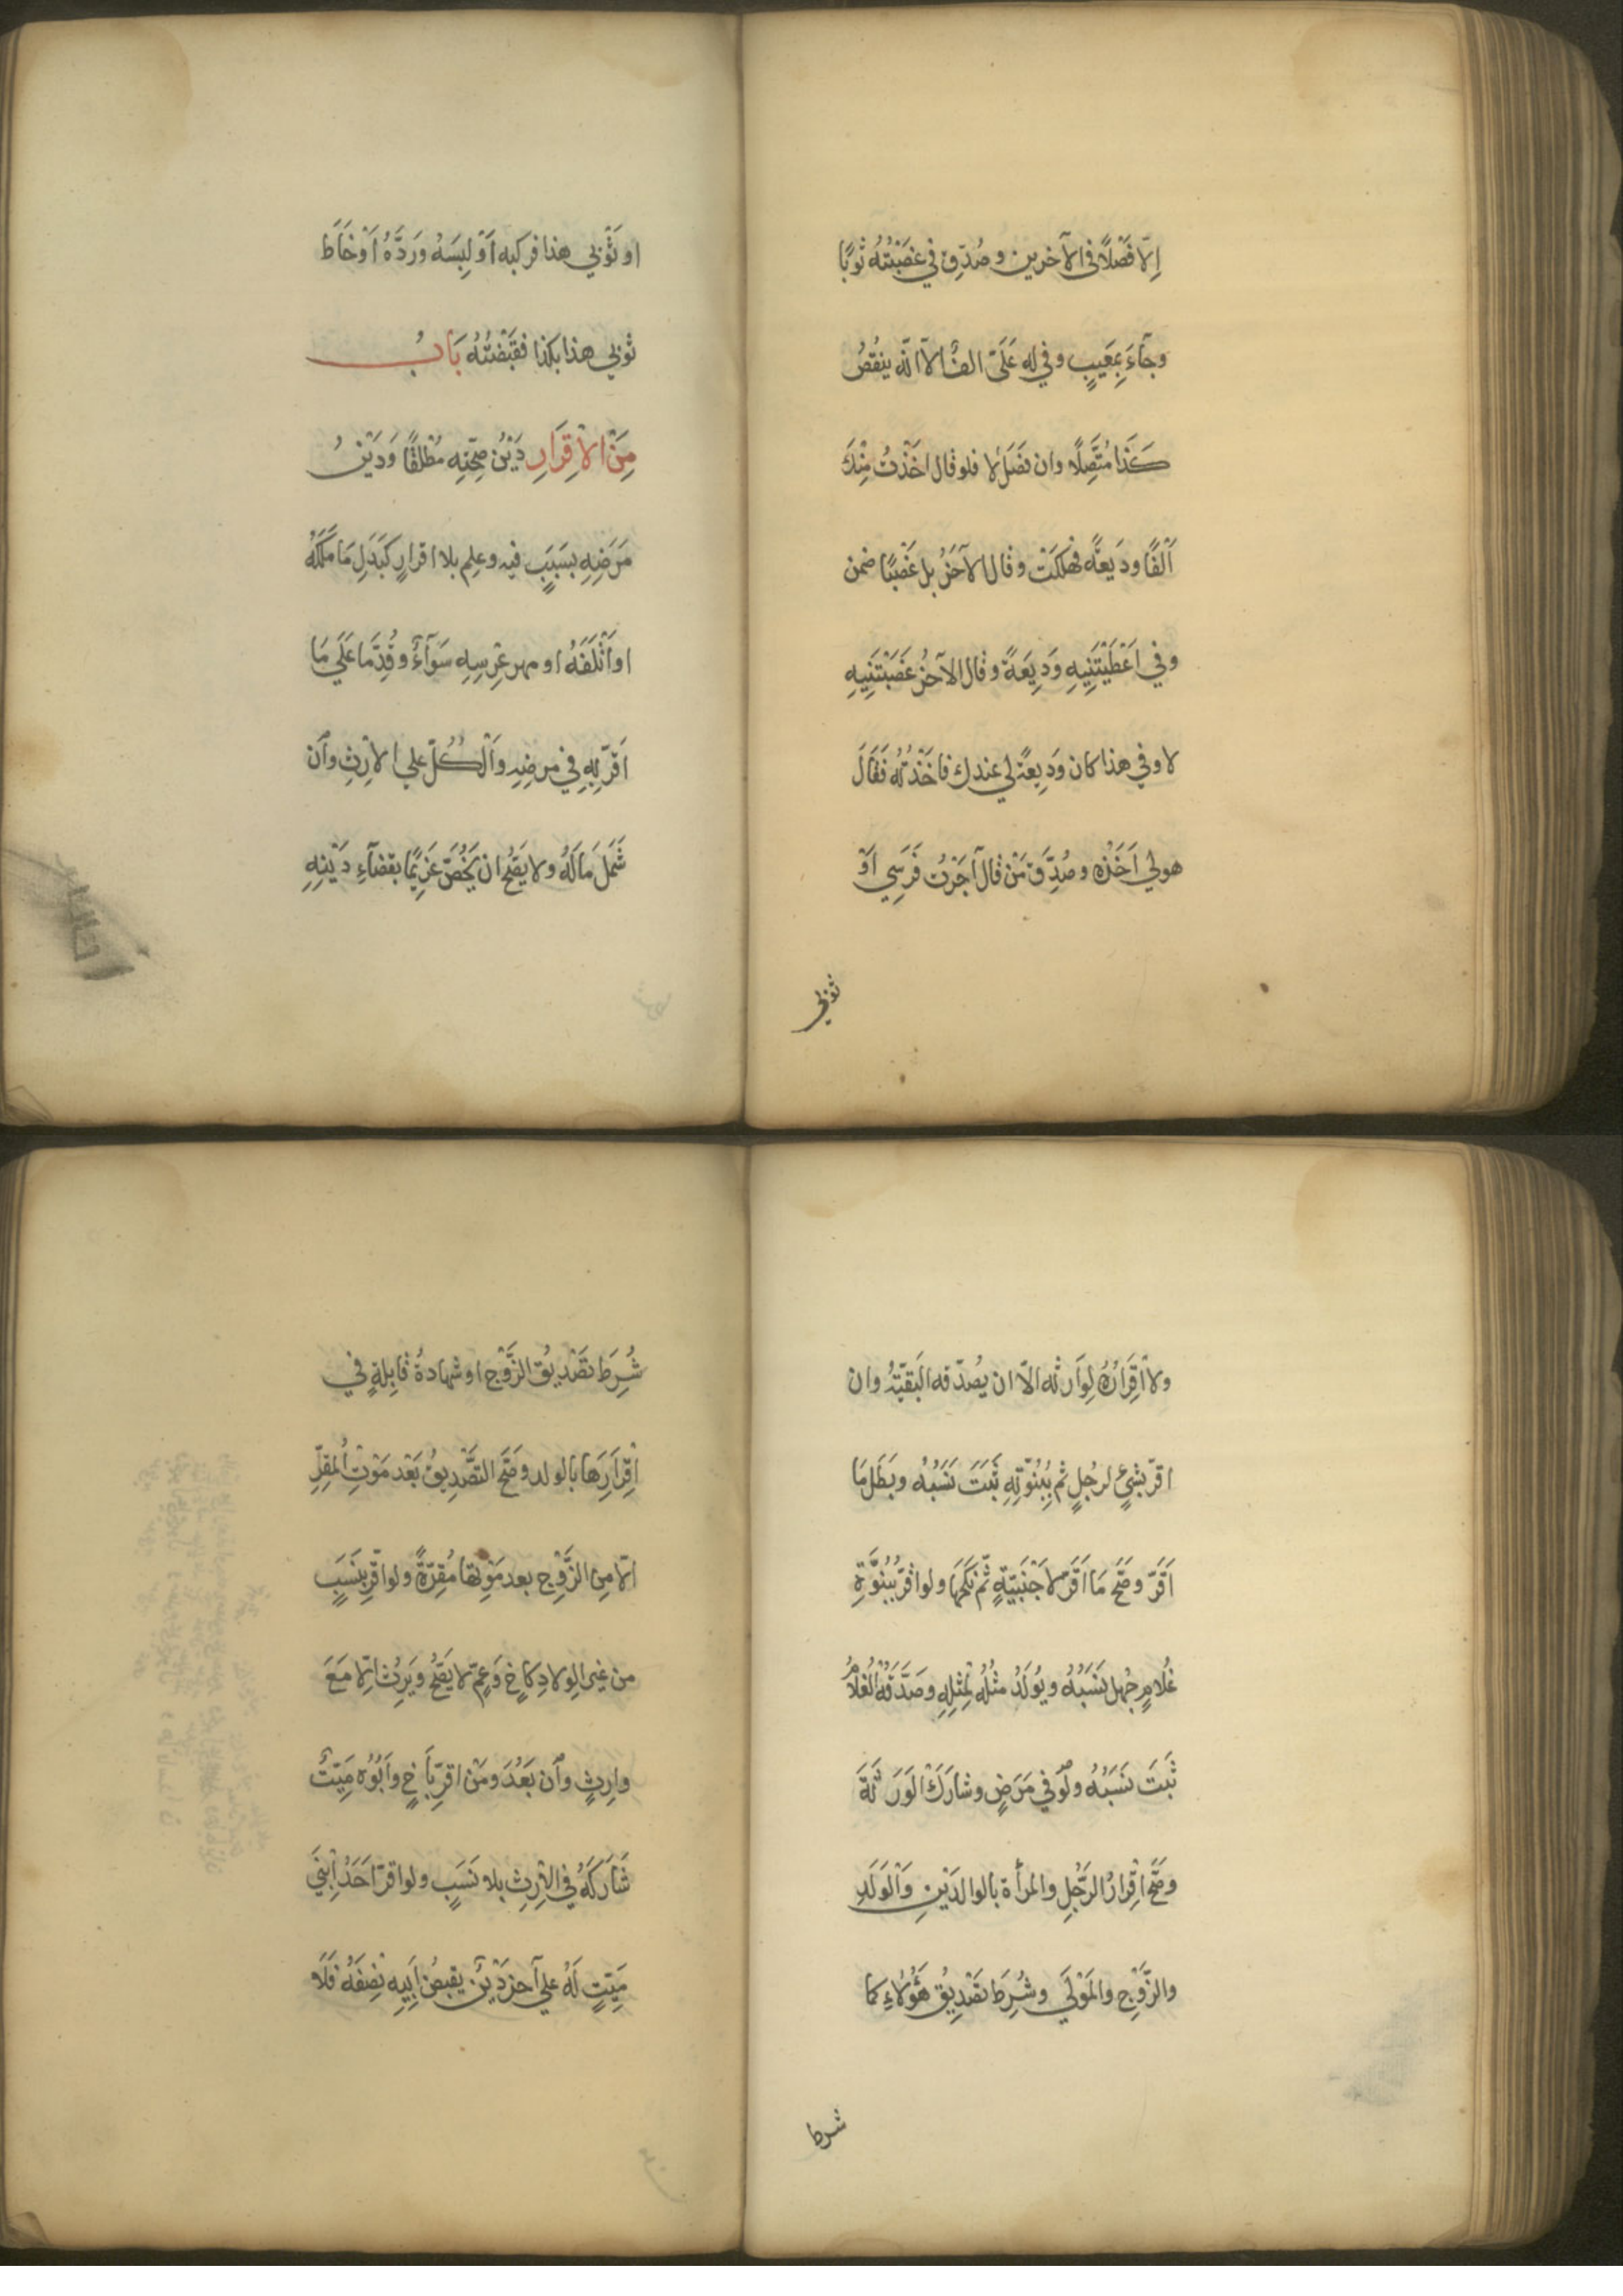 اِلّا فَصْلًا فى الآخرين و صُدّق في غصَبْتُهُ ثوبًا
وجَآءَ بمَعِيبٍ وفي له عَلَىّ الفٌ الّا انّه ينقُصُ
كَذَا مُتَّصِلًا وان فصَلَ لا فلو قال اخَذْتُ مِنْكَ
اَلْفًا ودِيعَةً فهلكَتْ وقال الآخَرُ بل غَصْبًا ضمن
وفي اعْطَيْتَنِيهِ وَدِيعَةً وقال الآخرُ غَصَبْتَنِيهِ
لا وفي هذا كان وَدِيعةً لي عندك فاخَذْتُه فَقَالَ
هو لي اَخَذَه وصُدِّقَ مَنْ قال آجَرْتُ فَرَسِي اَوْ
ثوبي
او ثَوْبي هذا فركبه اَوْ لبِسَهُ وَرَدَّهُ اَوْ خَاطَ
ثوبي هذا بكذا فقبَضْتُهُ بَابُ
مِنَ الْاِقرَارِ دَيْنُ صِحّتِهِ مُطْلَقًا وَدَيْنُ
مَرَضِهِ بسَبَبٍ فيه وعلم بلا اقرارٍ كَبَدَلِ مَا مَلَكَهُ
او اَتْلَفَهُ او مهر عِرْسِهِ سَوَآءٌ وقُدِّمَا عَلَى مَا
اَقَرّ بِهِ في مرضِهِ وَالْكُلّ على الاِرْثِ وَاِن
شَمَلَ مَالَهُ ولا يَصِحّ ان يَخُصّ غَرِيمًا بقضآءِ دَيْنِهِ
ولا اِقْرَارُهُ لِوَارثه الّا ان يُصدّقه الْبَقيّةُ وان
اقرّ بشئٍ لرجُلٍ ثم بِبُنُوّتِهِ ثَبَتَ نَسَبُهُ وبَطَلَ مَا
اَقَرّ وصَحَّ مَا اَقَرّ لاَجْنَبِيّةٍ ثُمّ نَكَحَهَا ولو اقرّ بِبُنُوَّةِ
غُلَامٍ جُهِل نَسَبُهُ ويُولَدُ مثْلُه لِمثْلِهِ وصَدَّقَهُ الْغُلَامُ
ثَبَتَ نَسَبُهُ ولَوْ في مَرَضٍ وشارَكَ الْوَرَثَةَ
وصَحّ اِقْرَارُ الرّجُلِ والمرأة بالوالدَيْنِ وَالْوَلَدِ
والزَّوْجِ والمَوْلَي وشُرِطَ تصْدِيقُ هَؤُلَاءِ كما
شرط
شُرِطَ تَصْدِيقُ الزَّوْجِ او شهادةُ قابِلَةٍ في
اِقْرَارِهَا بالولد وصَحّ التَّصْدِيقُ بَعْد مَوْتِ الْمقِرِّ
اِلّا مِنَ الزَّوْجِ بعد مَوْتِهَا مُقِرّةً ولو اقَرّ بِنَسَبٍ
من غير الولادِ كاَخٍ وَعَمٍّ لا يَصِحُّ وَيَرِثُ اِلّا مَعَ
وارِثٍ وَاِن بَعُدَ ومَنْ اقرّ بِاَخٍ واَبُوْه مَيّتٌ
شَارَكَهُ في الاِرْثِ بلا نَسَبٍ ولو اقرّ اَحَدُ اِبْنَيْ
مَيّتٍ لَهُ علي آخر دَيْنٌ بِقَبْضِ اَبِيهِ نِصفَهُ فَلَا